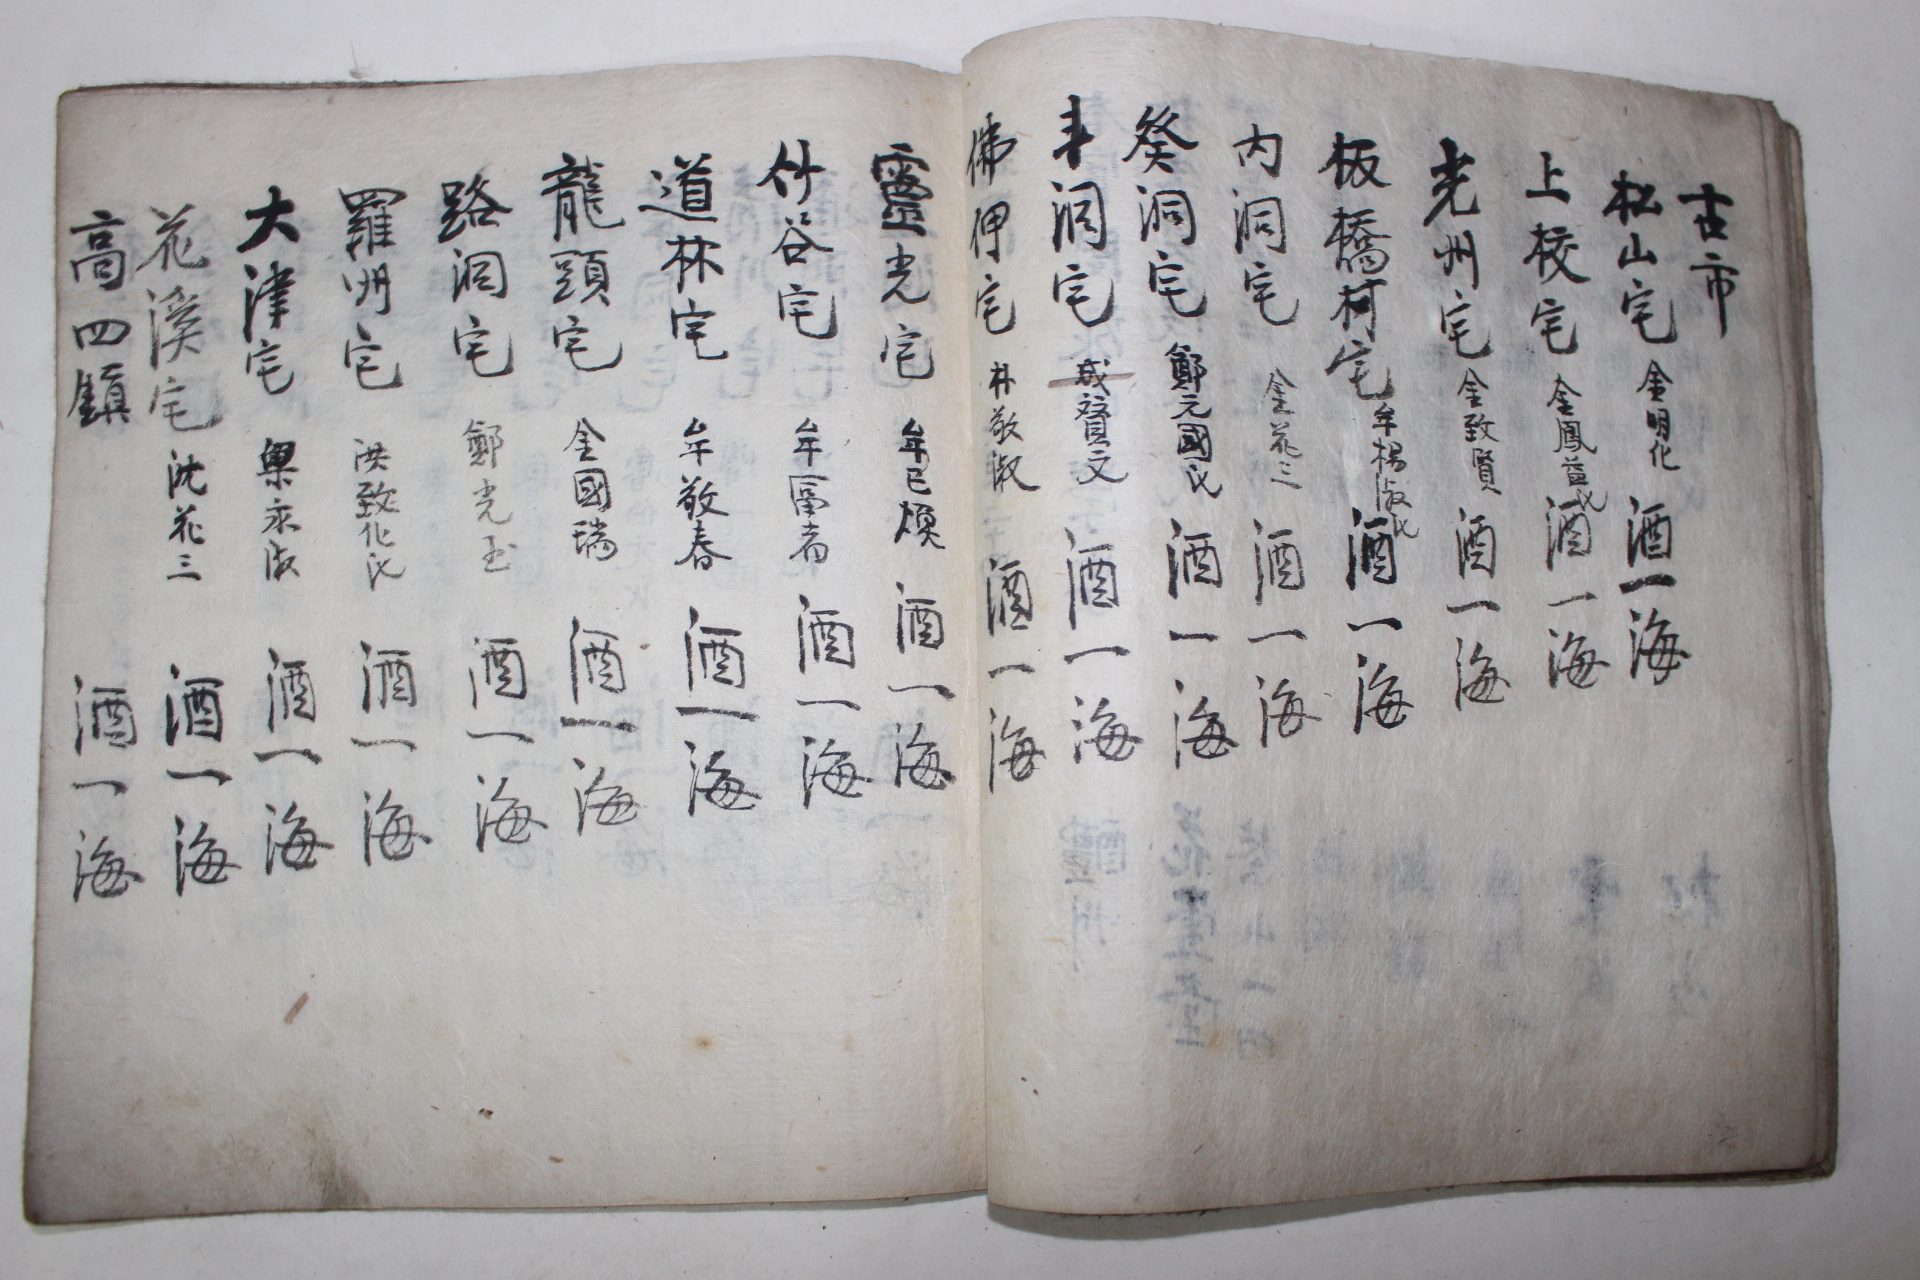 古市
松山宅 金明化 酒一海
上校宅 金鳳益氏 酒一海
光州宅 金致賢 酒一海
板橋村宅 牟楊淑氏 酒一海
内洞宅 金花三 酒一海
癸洞宅 鄭元國氏 酒一海
洞宅 成賛文 酒一海
佛岬宅 朴敬淑 酒一海
靈光宅 牟巳煥 酒一海
竹谷宅 牟 酒一海
道林宅 牟敬春 酒一海
龍頭宅 金國瑞 酒一海
路洞宅 鄭光玉 酒一海
羅州宅 洪致化氏 酒一海
大津宅 梁永淑 酒一海
花溪宅 沈花三 酒一海
高四鎭 酒一海